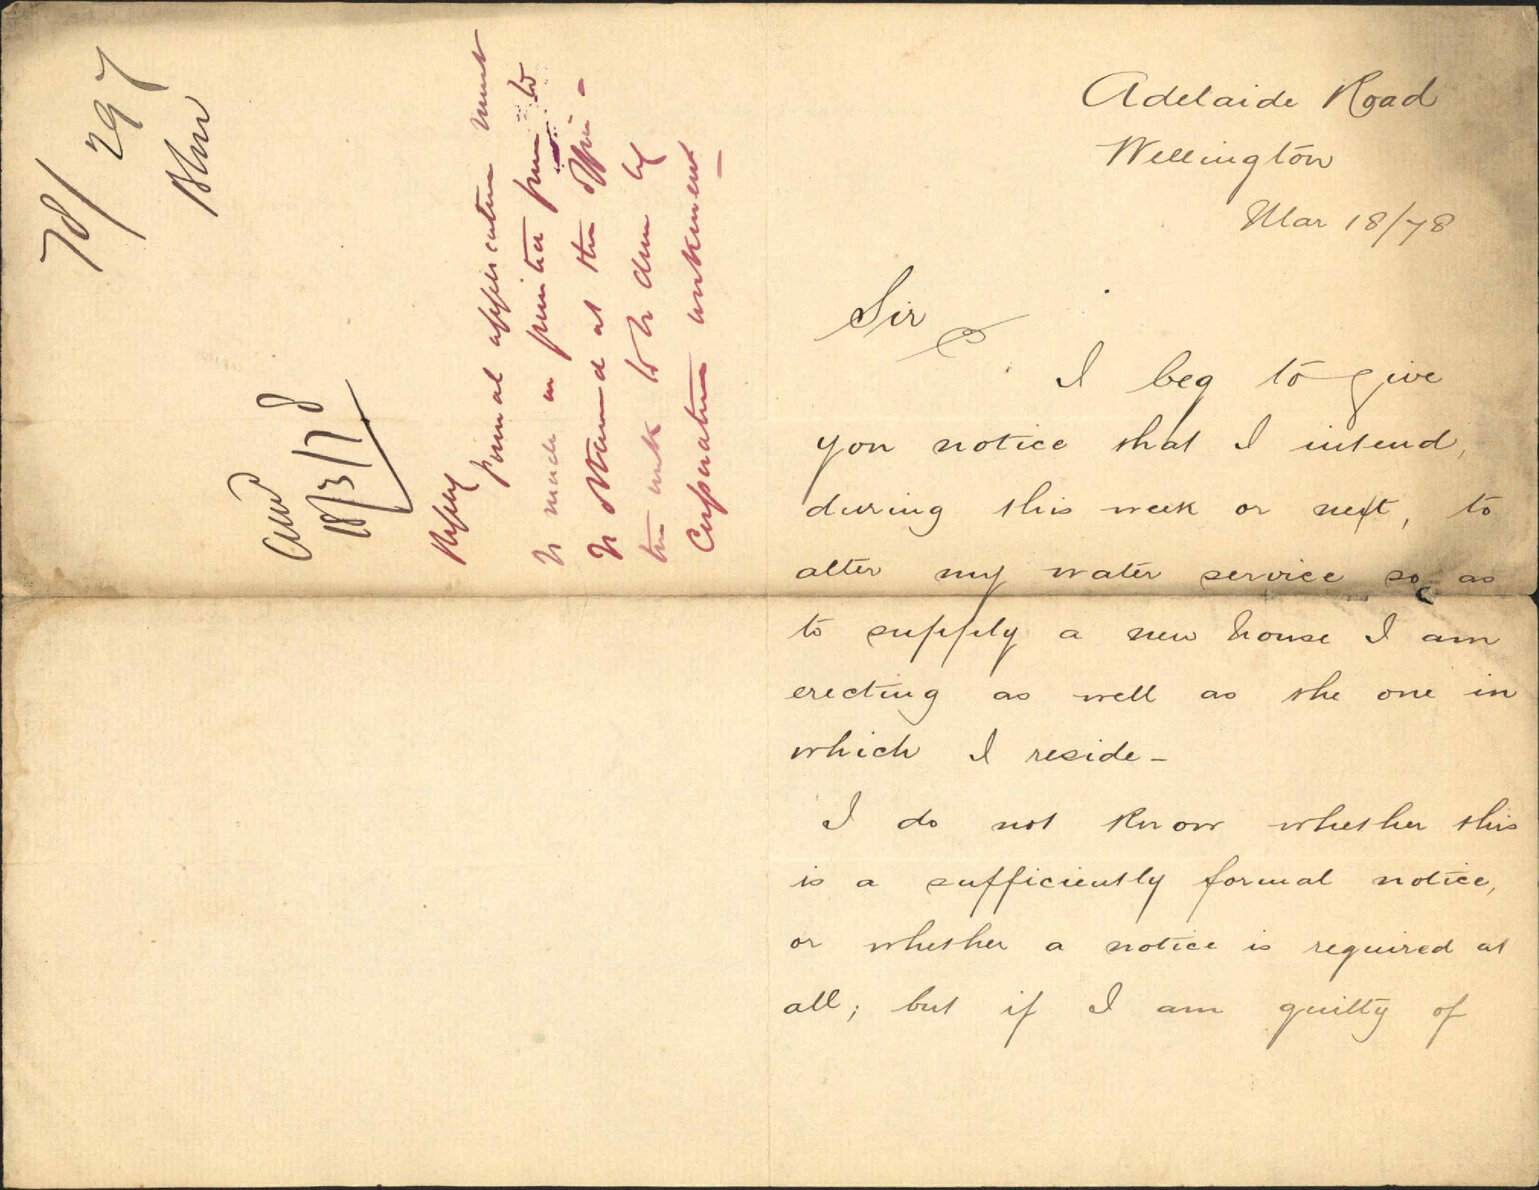 78/297
Answd
18/3/78
Reply
Formal application must
be made on printed form to
be obtained at the office -
the work to be done by
Corporation workmen -
Adelaide Road
Wellington
Mar 18/78
Sir
I beg to give
you notice that I intend,
during this week or next, to
alter my water service so as
to supply a new house I am
erecting as well as the one in
which I reside -
I do not know whether this
is a sufficiently formal notice,
or whether a notice is required at
all; but if I am guilty of